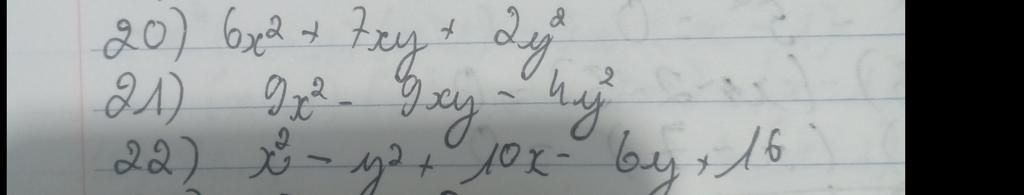 20) 6x² + 7xy + 2y²
21) 9x² - 9xy - 4y²
22) x² - y² + 10x - 6y + 16